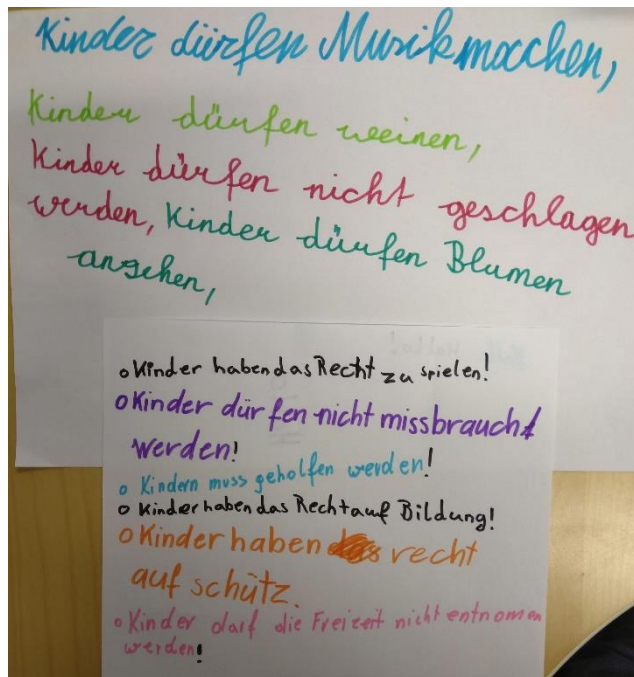 Kinder dürfen Musik machen,
Kinder dürfen weinen,
Kinder dürfen nicht geschlagen
werden, Kinder dürfen Blumen
ansehen,
o Kinder haben das Recht zu spielen!
o Kinder dürfen nicht missbraucht
werden!
o Kindern muss geholfen werden!
o Kinder haben das Recht auf Bildung!
o Kinder haben recht
auf schütz.
o Kinder darf die Freizeit nicht entnomen
werden!